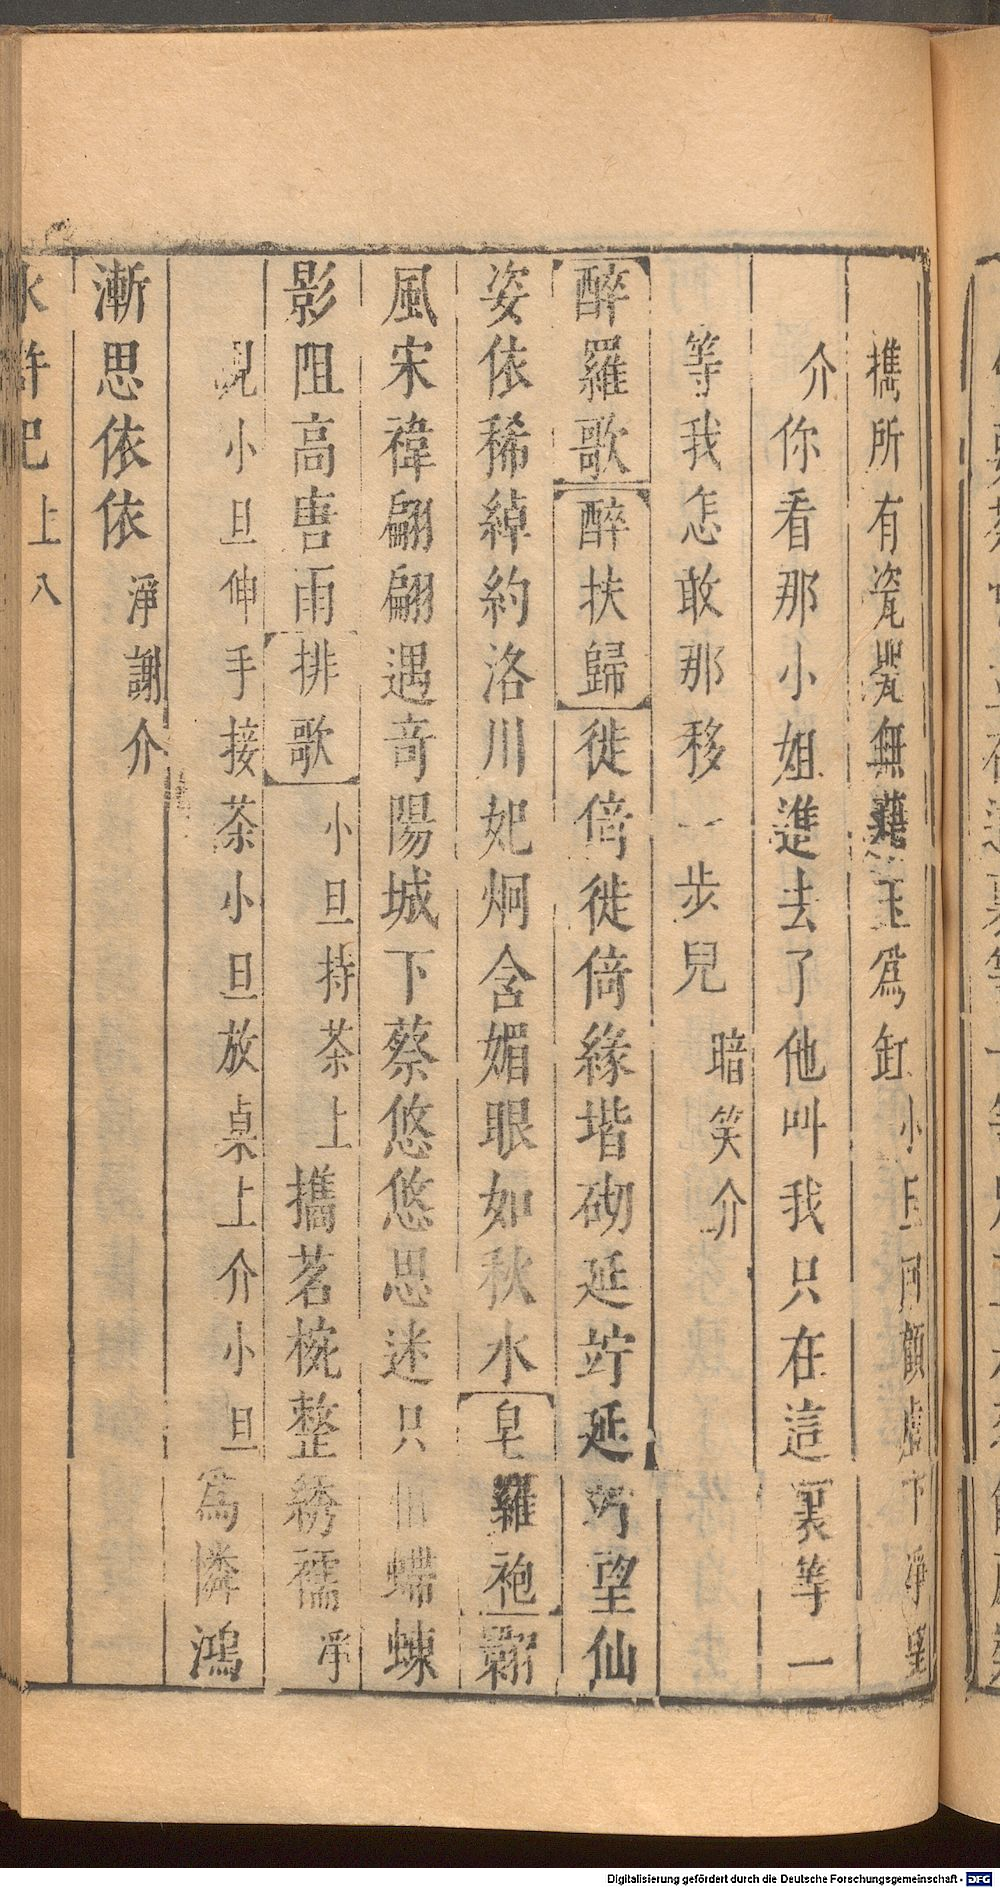 携所有瓷甖無藉玉為缸小旦回顧虛下淨望
介你看那小姐進去了他叫我只在這裏等一
等我怎敢那移一步兒暗笑介
醉羅歌醉扶歸徙倚徙倚緣堦砌延竚延竚望仙
姿依稀綽約洛川妃炯含媚眼如秋水皂羅袍
風宋禕翩翩遇奇陽城下蔡悠悠思迷只蠕蝀
影阻高唐雨排歌小旦持茶上攜茗椀整綉襦淨
見小旦伸手接茶小旦放桌上介小旦為憐鴻
漸思依依淨謝介
水滸記上八
Digitalisierung gefördert durch die Deutsche Forschungsgemeinschaft - DFG